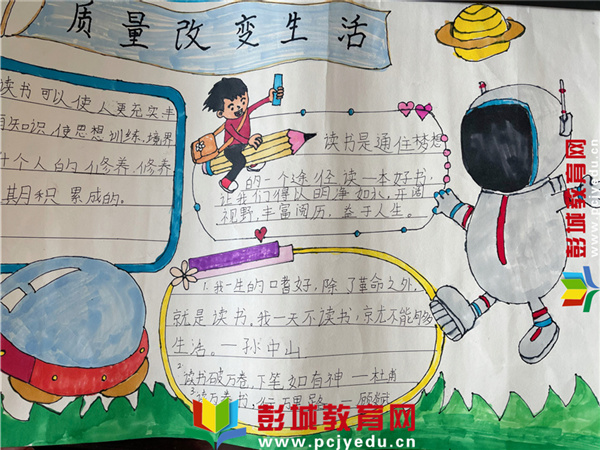 质量改变生活
读书可以使人更充实丰
知识,使思想训练,境界
个人的修养,修养
其月积累成的。
读书是通往梦想
的一个途径读一本好书,
让我们得以明净如水,开阔
视野,丰富阅历,益于人生。
1.我一生的口嗜好,除了革命之外,
就是读书,我一天不读书,就不能够
生活。—孙中山
2.读书破万卷,下笔如有神—杜甫
3.万卷书,行万里路—顾
彭城教育网
www.pcjyedu.cn
彭城教育网
www.pcjyedu.cn